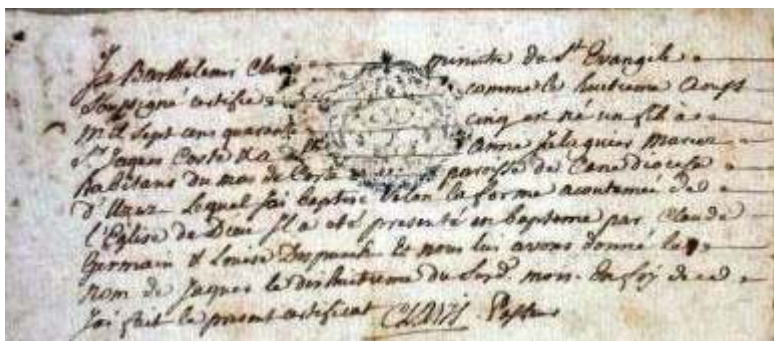 Je Barthelemi Claris ministre du St Evangile
Soussigné certifie comme le huitieme Aoust
mil sept cens quarante cinq est né un fils à
Sr Jaques Coste & a Anne Mariez
habitans du mas de Coste paroisse de Cane diocese
d'Uzez. Lequel j'ai baptisé selon la forme acoutumée de
l'Eglise de Dieu Il a eté presenté en bapteme par Claude
Germain & Louise Et nous lui avons donné le
nom de Jaques le dixhuitieme du Susd. mois. En foy de ce
j'ai fait le present certificat CLARIS Pasteur